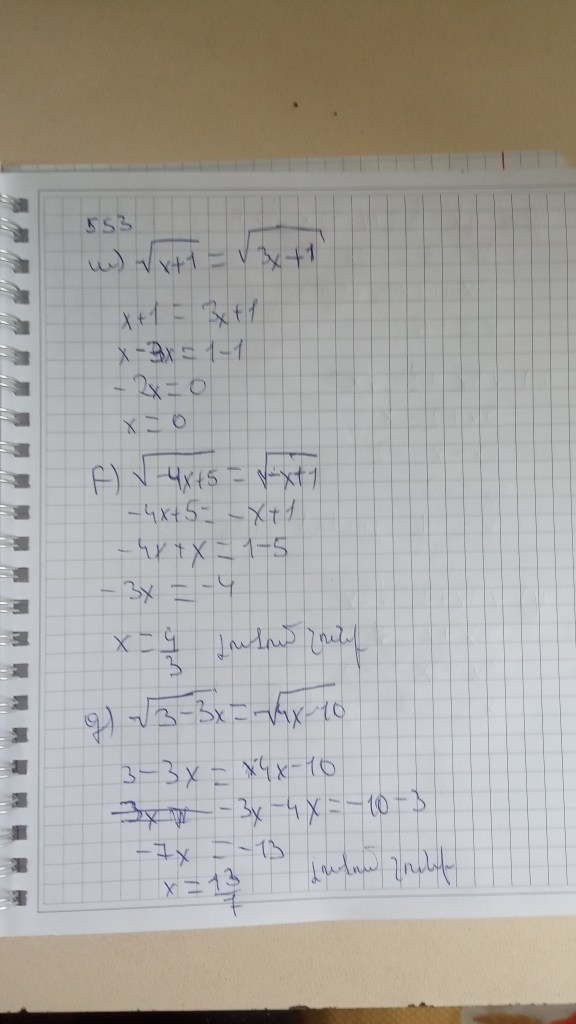 553
ա) √x+1 = √3x+1
x+1 = 3x+1
x-3x=1-1
-2x=0
x=0
բ) √-4x+5 = √-x+1
-4x+5=-x+1
-4x+x=1-5
-3x=-4
x=4/3
գ) √3-3x=√4x-10
3-3x=4x-10
-3x-4x=-10-3
-7x=-13
x=13/7